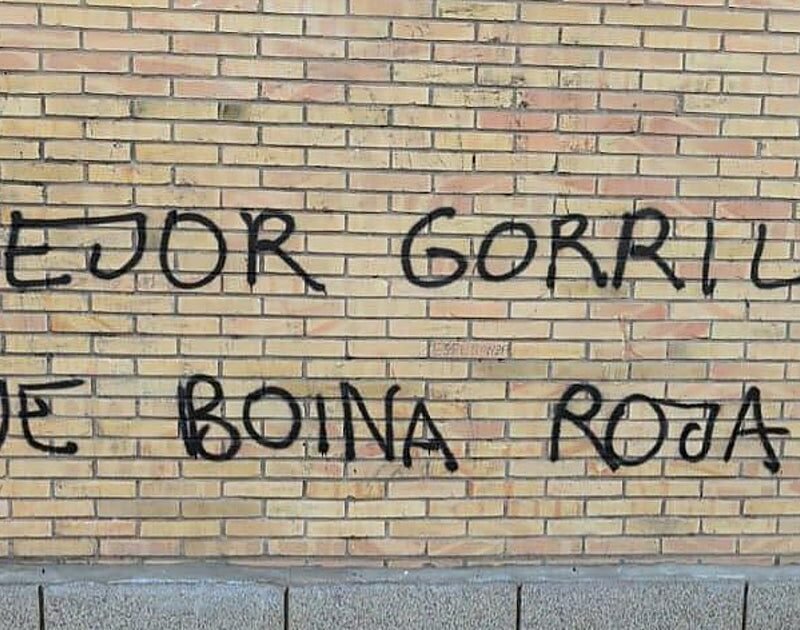 EJOR GORRIL
UE BOINA ROJA